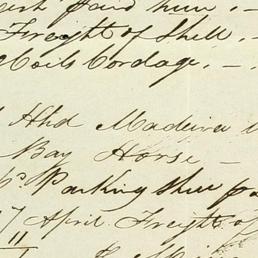 paid him . -
Freight of Shell . -
Coils Cordage . -
Hhd Madeira
Bay Horse -
Parking
7 April Freight of
11